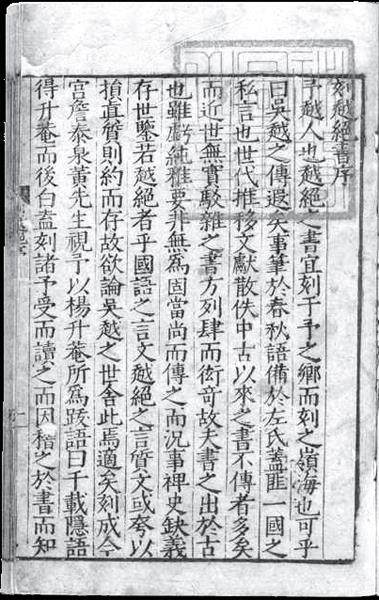 刻越絕書序
予越人也越絕之書宜刻于予之鄉而刻之嶺海也可乎
曰吳越之傳遐矣事筆於春秋語備於左氏蓋匪一國之
私言也世代推移文獻散佚中古以來之書不傳者多矣
而近世無實駁雜之書方列肆而衒奇故夫書之出於古
也雖虧純雅要非無為固當尚而傳之而況事裨史缺義
存世鑒若越絕者乎國語之言文越絕之言質文或夸以
損真質則約而存故欲論吳越之世舍此焉適矣刻成今
宮詹泰泉黃先生視予以楊升菴所為跋語曰千載隱語
得升菴而後白盍刻諸予受而讀之而因稽之於書而知